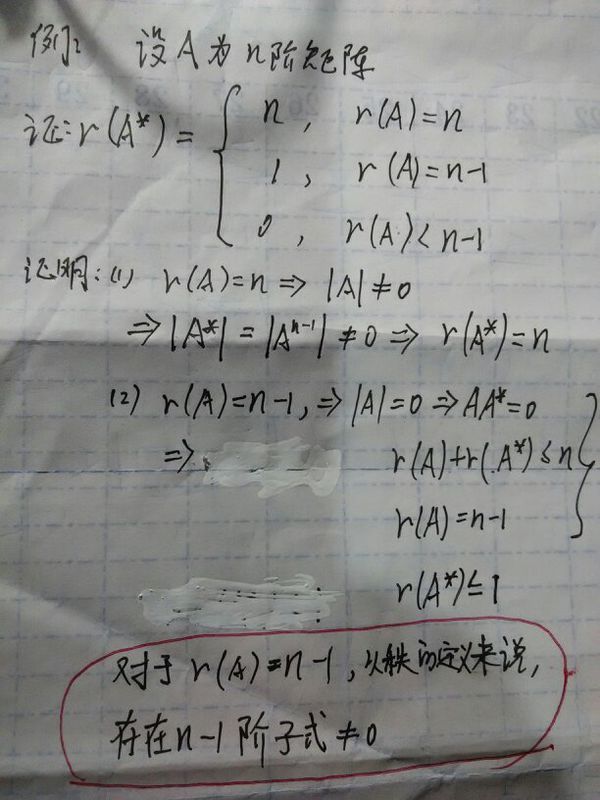 例: 设A为n阶矩阵
证: r(A*) = { n, r(A)=n
1, r(A)=n-1
0, r(A)<n-1
证明: (1) r(A)=n ⇒ |A|≠0
⇒ |A*| = |Aⁿ⁻¹| ≠0 ⇒ r(A*)=n
(2) r(A)=n-1, ⇒ |A|=0 ⇒ AA*=0
⇒ r(A)+r(A*)≤n }
r(A)=n-1
r(A*)≤1
对于r(A)=n-1, 从秩的定义来说,
存在n-1阶子式≠0